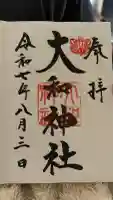 奉拝
大和神社
令和七年八月三日